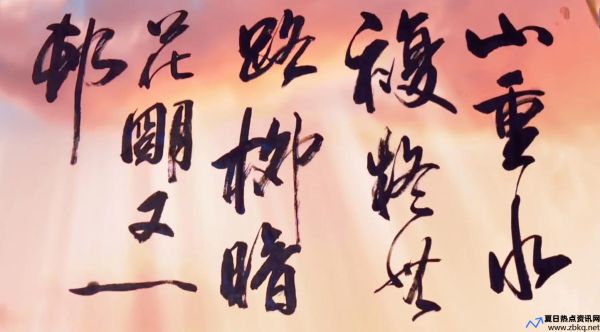 山重水
複疑無
路柳暗
花明又一
邨
夏日热点资讯网
www.zbkq.net